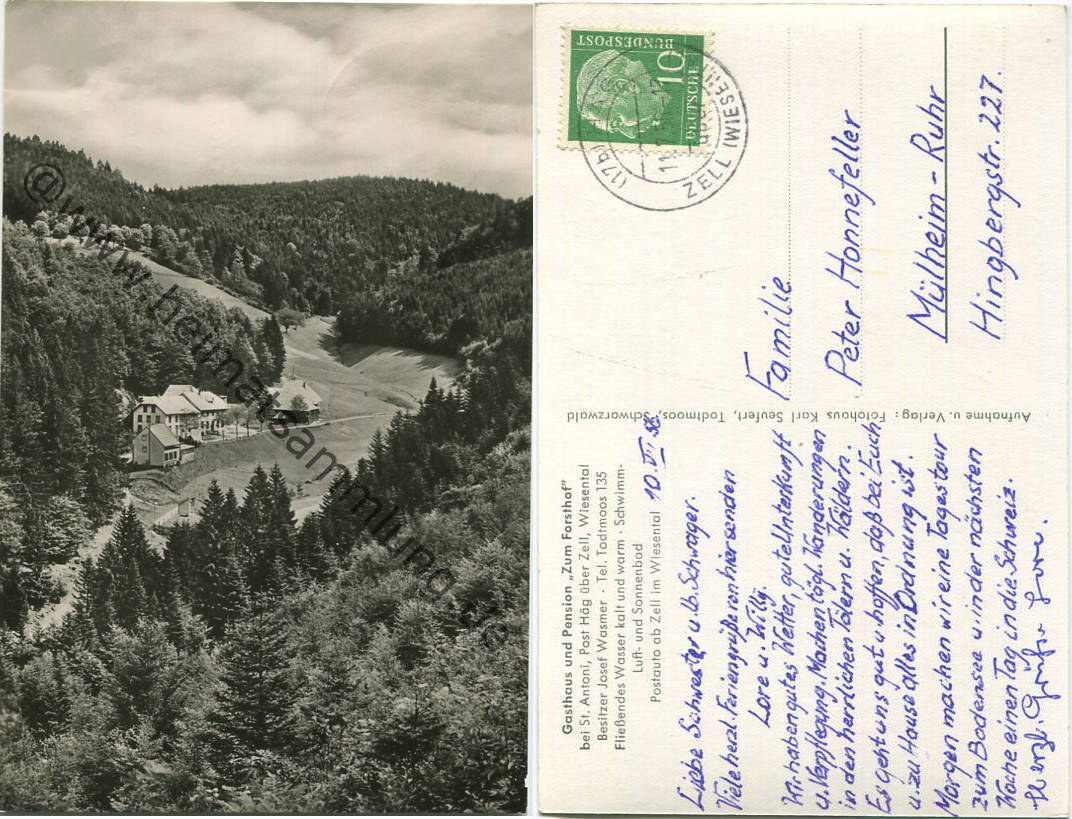 @www.heimatsammlung.de
Gasthaus und Pension „Zum Forsthof"
bei St. Antoni, Post Häg über Zell, Wiesental
Besitzer Josef Wasmer · Tel. Todtmoos 135
Fließendes Wasser kalt und warm · Schwimm-
Luft- und Sonnenbad
Postauto ab Zell im Wiesental 10. VII 56
Liebe Schwester u. lb. Schwager.
Viele herzl. Feriengrüße von hier senden
Lore u. Willy.
Wir haben gutes Wetter, gute Unterkunft
u. Verpflegung. Machen tägl. Wanderungen
in den herrlichen Tälern u. Wäldern.
Es geht uns gut u. hoffen, daß bei Euch
u. zu Hause alles in Ordnung ist.
Morgen machen wir eine Tagestour
zum Bodensee u. in der nächsten
Woche einen Tag in die Schweiz.
Herzl. Grüße Lore.
Aufnahme u. Verlag: Fotohaus Karl Seufert, Todtmoos, Schwarzwald
DEUTSCHE
BUNDESPOST
10
(17b)
ZELL (WIESENTAL)
Familie
Peter Honnefeller
Mülheim-Ruhr
Hingbergstr. 227.